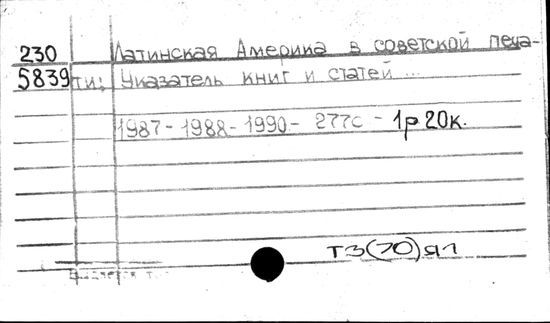 230 Латинская Америка в советской печа-
5839 ти: Указатель книг и статей ...
1987 - 1988 - 1990 - 277с - 1р 20к.
Т3(70)я1